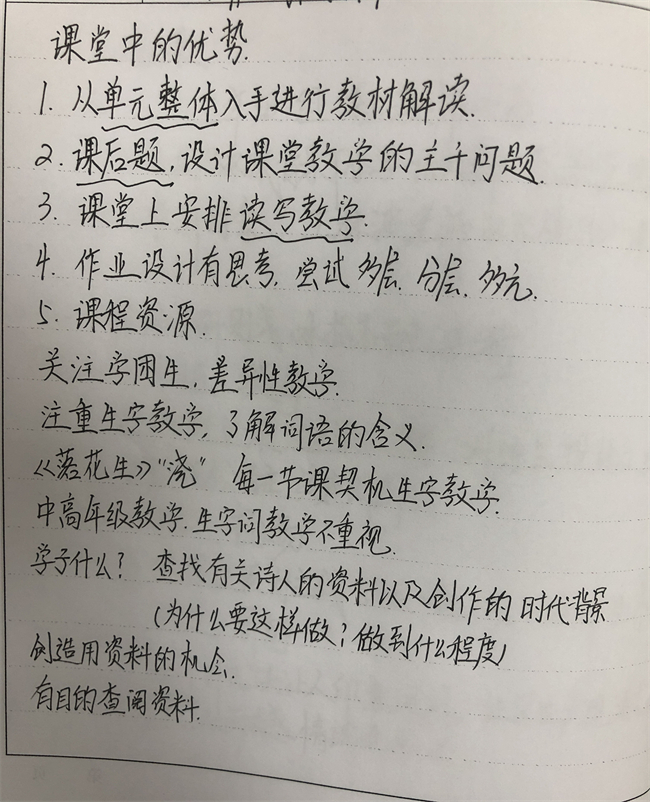 课堂中的优势.
1. 从单元整体入手进行教材解读.
2. 课后题,设计课堂教学的主干问题.
3. 课堂上安排读写教学.
4. 作业设计有思考,尝试多层.分层.多元.
5. 课程资源.
关注学困生,差异性教学.
注重生字教学,了解词语的含义.
《落花生》“浇” 每一节课契机生字教学.
中高年级教学.生字词教学不重视.
学了什么? 查找有关诗人的资料以及创作的时代背景
(为什么要这样做?做到什么程度)
创造用资料的机会.
有目的查阅资料.